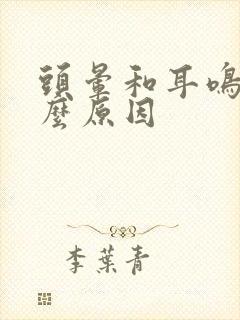 頭暈和耳鳴
麼原因
李葉青